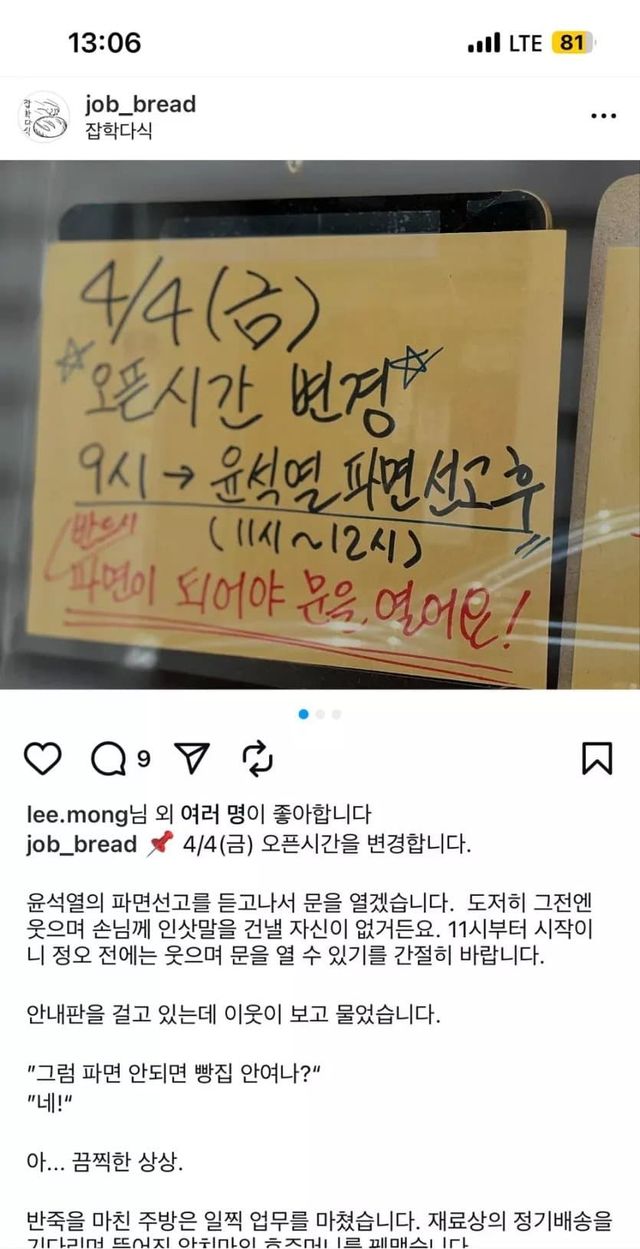 13:06
LTE 81
job_bread
잡학다식
4/4(금)
오픈시간 변경
9시 → 윤석열 파면선고후
(11시~12시)
반드시
파면이 되어야 문을 열어요!
9
lee.mong님 외 여러 명이 좋아합니다
job_bread 📌 4/4(금) 오픈시간을 변경합니다.
윤석열의 파면선고를 듣고나서 문을 열겠습니다. 도저히 그전엔
웃으며 손님께 인삿말을 건낼 자신이 없거든요. 11시부터 시작이
니 정오 전에는 웃으며 문을 열 수 있기를 간절히 바랍니다.
안내판을 걸고 있는데 이웃이 보고 물었습니다.
"그럼 파면 안되면 빵집 안여나?“
"네!“
아... 끔찍한 상상.
반죽을 마친 주방은 일찍 업무를 마쳤습니다. 재료상의 정기배송을